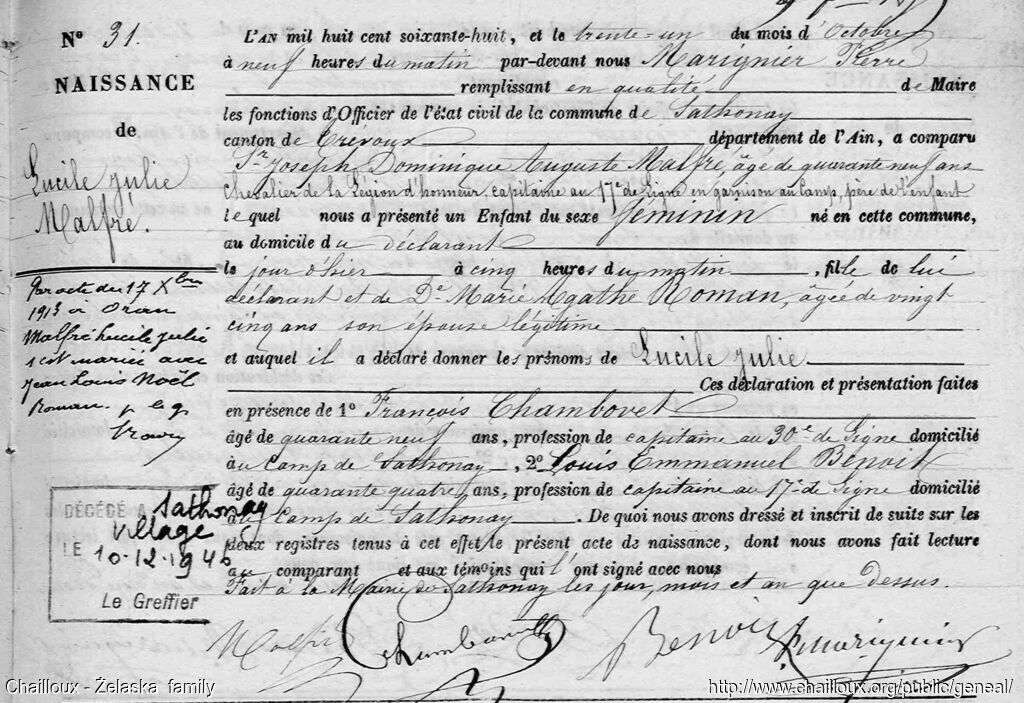 Nº 31.
NAISSANCE
de
Lucile Julie
Malfré.
Par acte du 17 Xbre
1913 à Oran
Malfré Lucile Julie
s'est mariée avec
Jean Louis Noël
Roman. p le g
DÉCÉDÉ A Sathonay
village
LE 10-12-1946
Le Greffier
L'AN mil huit cent soixante-huit, et le trente-un du mois d'Octobre
à neuf heures du matin par-devant nous Marignier Pierre
remplissant en qualité de Maire
les fonctions d'Officier de l'état civil de la commune de Sathonay
canton de Trévoux département de l'Ain, a comparu
Sr Joseph Dominique Auguste Malfré, âgé de quarante neuf ans
chevalier de la Légion d'honneur, capitaine au 17e de Ligne en garnison au camp, père de l'enfant
lequel nous a présenté un Enfant du sexe féminin né en cette commune,
au domicile du déclarant
le jour d'hier à cinq heures du matin, fille de lui
déclarant et de De Marie Agathe Roman, âgée de vingt
cinq ans son épouse légitime
et auquel il a déclaré donner les prénoms de Lucile Julie
Ces déclaration et présentation faites
en présence de 1º François Chambovet
âgé de quarante neuf ans, profession de capitaine au 30e de Ligne domicilié
au Camp de Sathonay, 2º Louis Emmanuel Benoit
âgé de quarante quatre ans, profession de capitaine au 17e de Ligne domicilié
au Camp de Sathonay. De quoi nous avons dressé et inscrit de suite sur les
deux registres tenus à cet effet le présent acte de naissance, dont nous avons fait lecture
au comparant et aux témoins qui l'ont signé avec nous
Fait à la Mairie de Sathonay les jour, mois et an que dessus.
Malfré Chambovet Benoit P. Marignier
Chailloux - Żelaska family
http://www.chailloux.org/public/geneal/